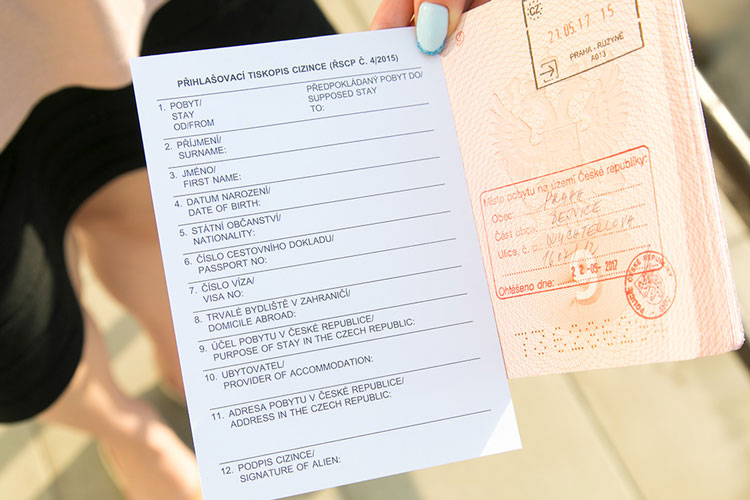 PŘIHLAŠOVACÍ TISKOPIS CIZINCE (ŘSCP Č. 4/2015)
1. POBYT/
STAY
OD/FROM
PŘEDPOKLÁDANÝ POBYT DO/
SUPPOSED STAY
TO:
2. PŘÍJMENÍ/
SURNAME:
3. JMÉNO/
FIRST NAME:
4. DATUM NAROZENÍ/
DATE OF BIRTH:
5. STÁTNÍ OBČANSTVÍ/
NATIONALITY:
6. ČÍSLO CESTOVNÍHO DOKLADU/
PASSPORT NO:
7. ČÍSLO VÍZA/
VISA NO:
8. TRVALÉ BYDLIŠTĚ V ZAHRANIČÍ/
DOMICILE ABROAD:
9. ÚČEL POBYTU V ČESKÉ REPUBLICE/
PURPOSE OF STAY IN THE CZECH REPUBLIC:
10. UBYTOVATEL/
PROVIDER OF ACCOMMODATION:
11. ADRESA POBYTU V ČESKÉ REPUBLICE/
ADDRESS IN THE CZECH REPUBLIC:
12. PODPIS CIZINCE/
SIGNATURE OF ALIEN:
CZ
21.05.17 15
PRAHA-RUZYNĚ
Místo pobytu na území České republiky:
Obec:
Část obce: DEJVICE
Ulice, č. p.:
Ohlášeno dne: 22-05-2017
9